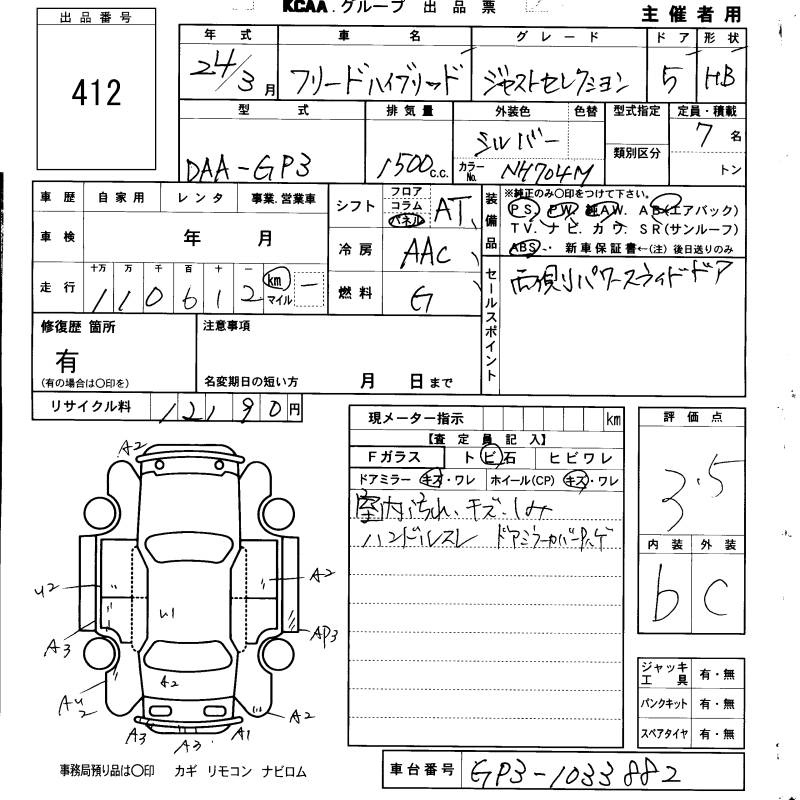 KCAA.グループ 出品票
主催者用
出品番号
412
年式 車名 グレード ドア 形状
24/3月 フリードハイブリッド ジャストセレクション 5 HB
型式 排気量 外装色 色替 型式指定 定員・積載
DAA-GP3 1500c.c. シルバー 7名
カラーNo. NH704M 類別区分 トン
車歴 自家用 レンタ 事業.営業車
車検 年 月
走行 十万 万 千 百 十 一
110612 km マイル
シフト フロア コラム パネル AT
冷房 AAC
燃料 G
装備品 ※純正のみ○印をつけて下さい。
PS. PW. 純AW. AB(エアバック)
TV. ナビ. カワ. SR(サンルーフ)
ABS・ 新車保証書←(注) 後日送りのみ
セールスポイント
両側リパワースライドドア
修復歴 箇所
有
(有の場合は○印を)
注意事項
名変期日の短い方 月 日まで
リサイクル料 12190円
現メーター指示 km
【査定員記入】
Fガラス トビ石 ヒビワレ
ドアミラー キズ・ワレ ホイール(CP) キズ・ワレ
室内汚れ、キズ、しみ
ハンドルスレ ドアミラーカバー
評価点
3.5
内装 外装
b C
A2
U2
A2
A3
U1
AP3
A2
AU2
A2
A3
A3
A1
ジャッキ工具 有・無
パンクキット 有・無
スペアタイヤ 有・無
事務局預り品は○印 カギ リモコン ナビロム
車台番号 GP3-1033882